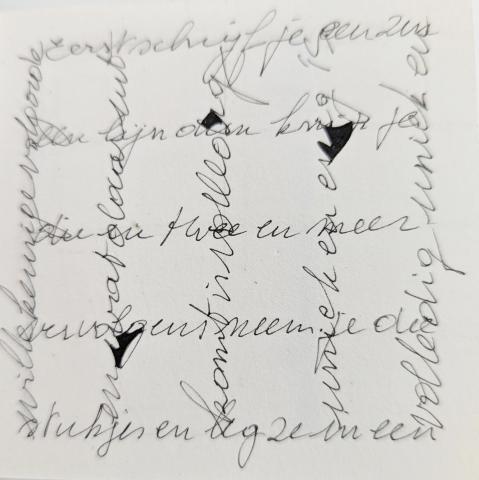 eerst schrijf je een zin
een lijn dan krijg je
die en twee en meer
vervolgens neem je de
stukjes en leg ze in een
willekeurige volgorde
en wat
komt is volledig
uniek en en
volledig uniek en